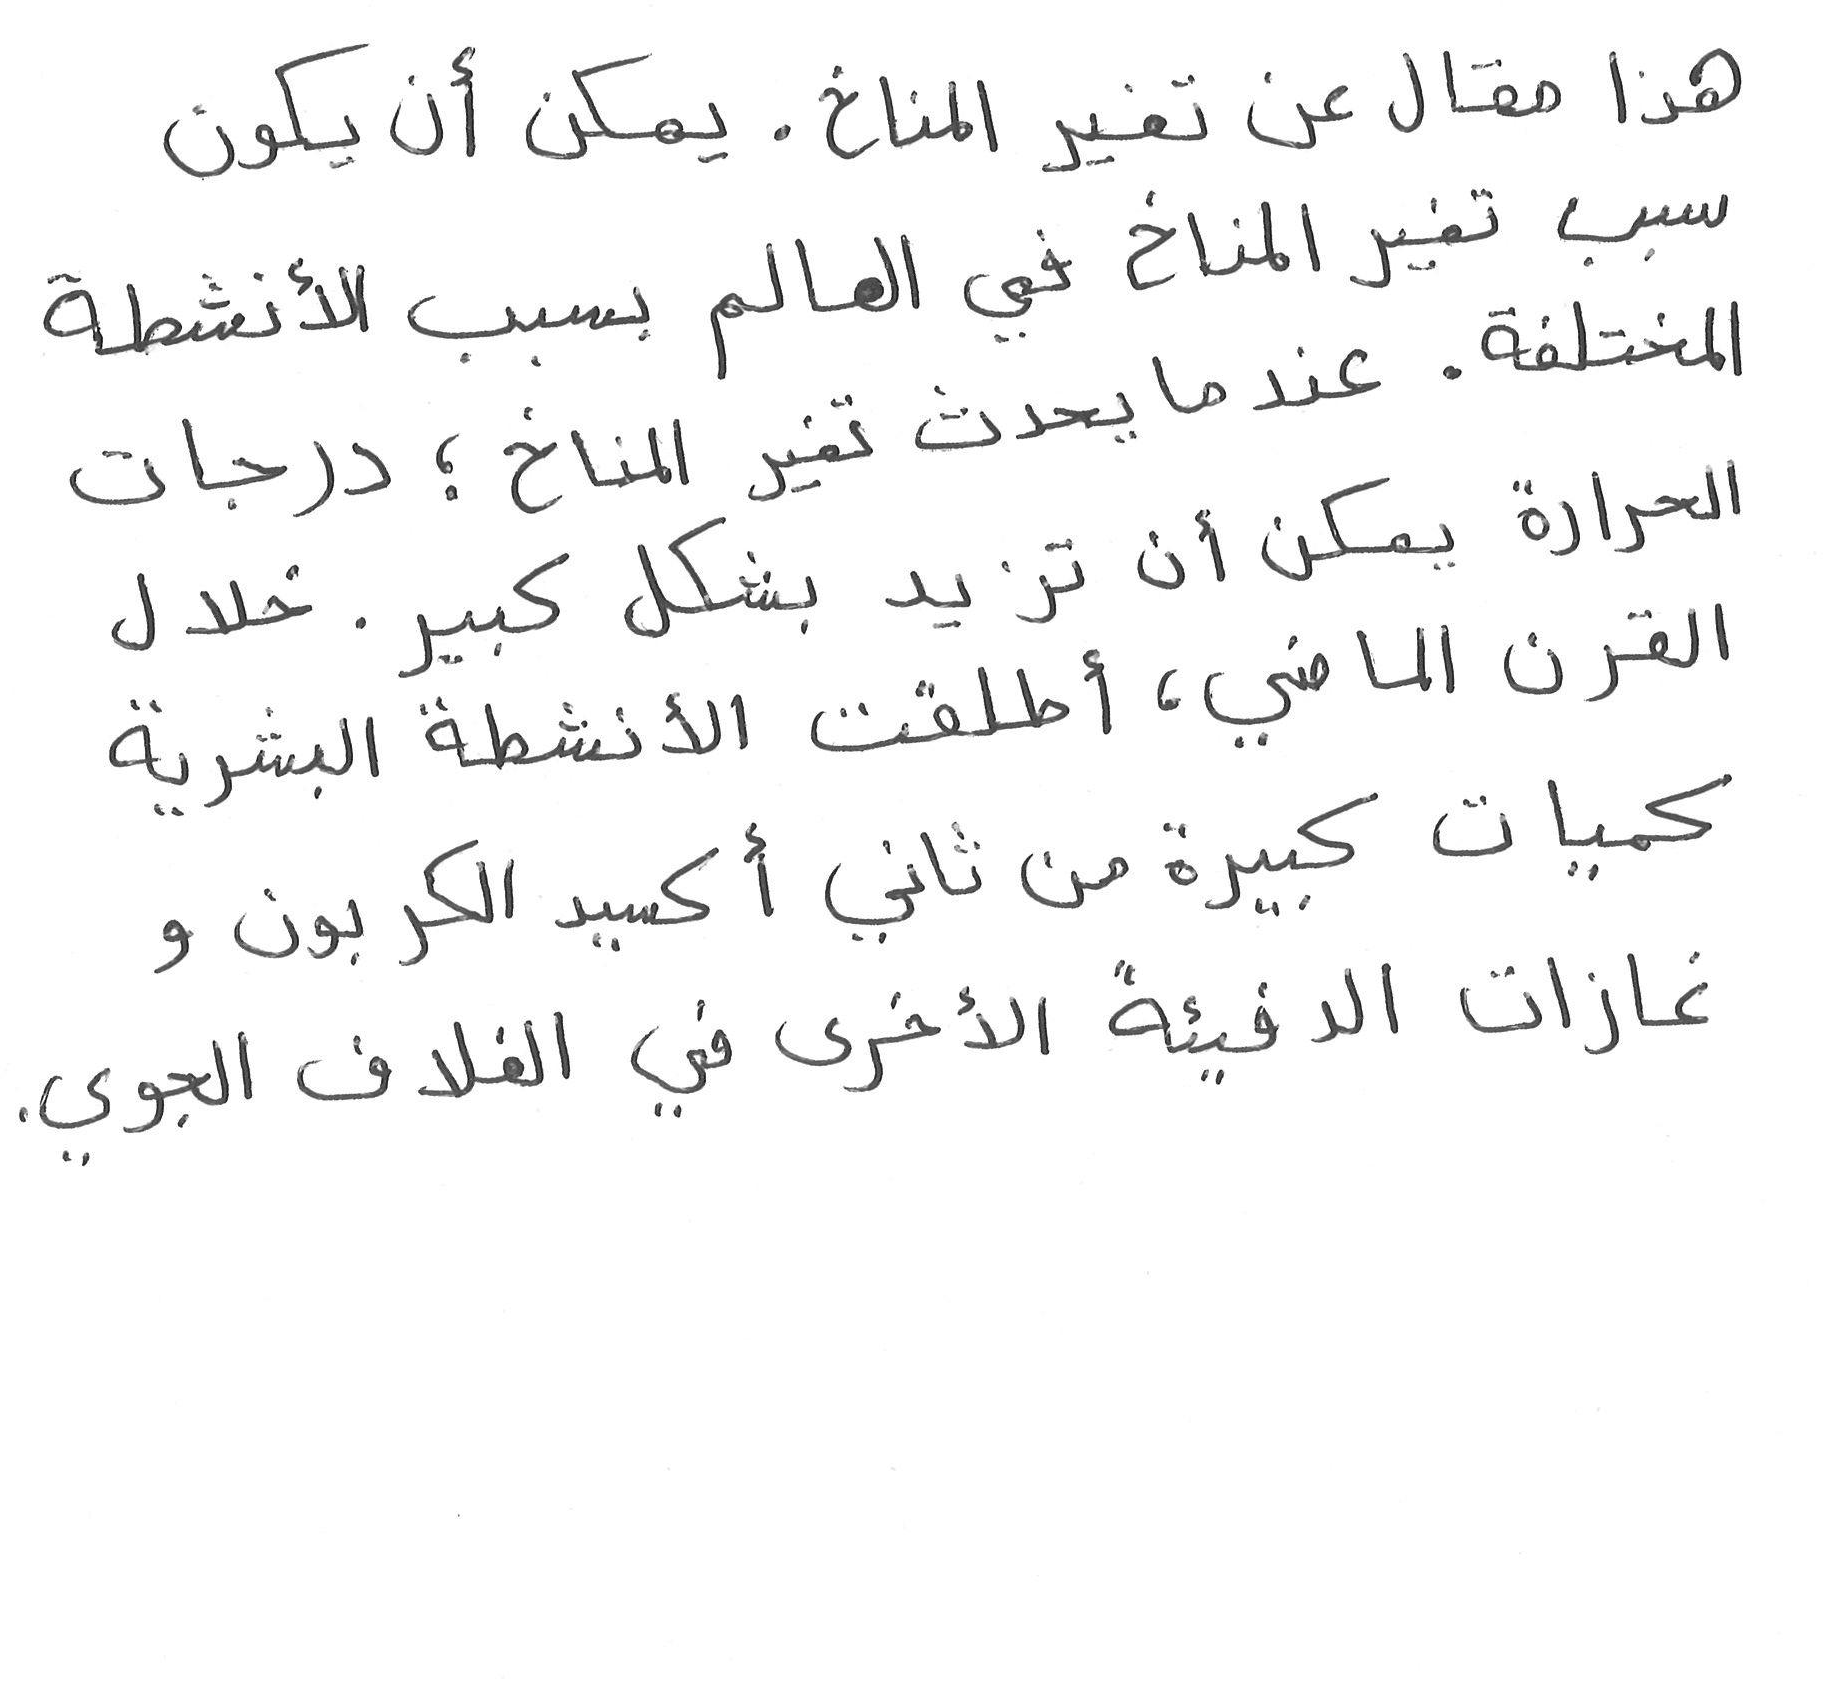 هذا مقال عن تغير المناخ. يمكن أن يكون
سبب تغير المناخ في العالم بسبب الأنشطة
المختلفة. عندما يحدث تغير المناخ؛ درجات
الحرارة يمكن أن تزيد بشكل كبير. خلال
القرن الماضي، أطلقت الأنشطة البشرية
كميات كبيرة من ثاني أكسيد الكربون و
غازات الدفيئة الأخرى في الغلاف الجوي.